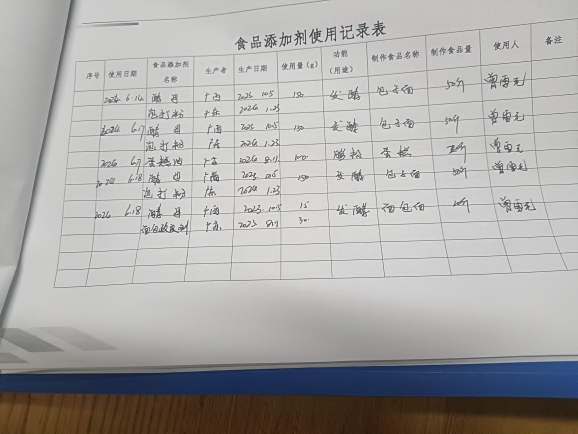 食品添加剂使用记录表
序号 使用日期 食品添加剂名称 生产者 生产日期 使用量(g) 功能(用途) 制作食品名称 制作食品量 使用人 备注
2024 6.16 酵母 广西 2023 10.5 150 发酵 包子面 50斤 曾雪无
泡打粉 广东 2024 1.23
2024 6.17 酵母 广西 2023 10.5 150 发酵 包子面 50斤 曾雪无
泡打粉 广东 2024 1.23
2024 6.17 蛋糕油 广东 2023 8.17 100 蛋糕 曾雪无
2024 6.18 酵母 广西 2023 10.5 150 发酵 包子面 50斤 曾雪无
泡打粉 广东 2024 1.23
2024 6.18 酵母 广西 2023 10.5 15 发酵 面包面 曾雪无
面包改良剂 广东 2023 8.9 30